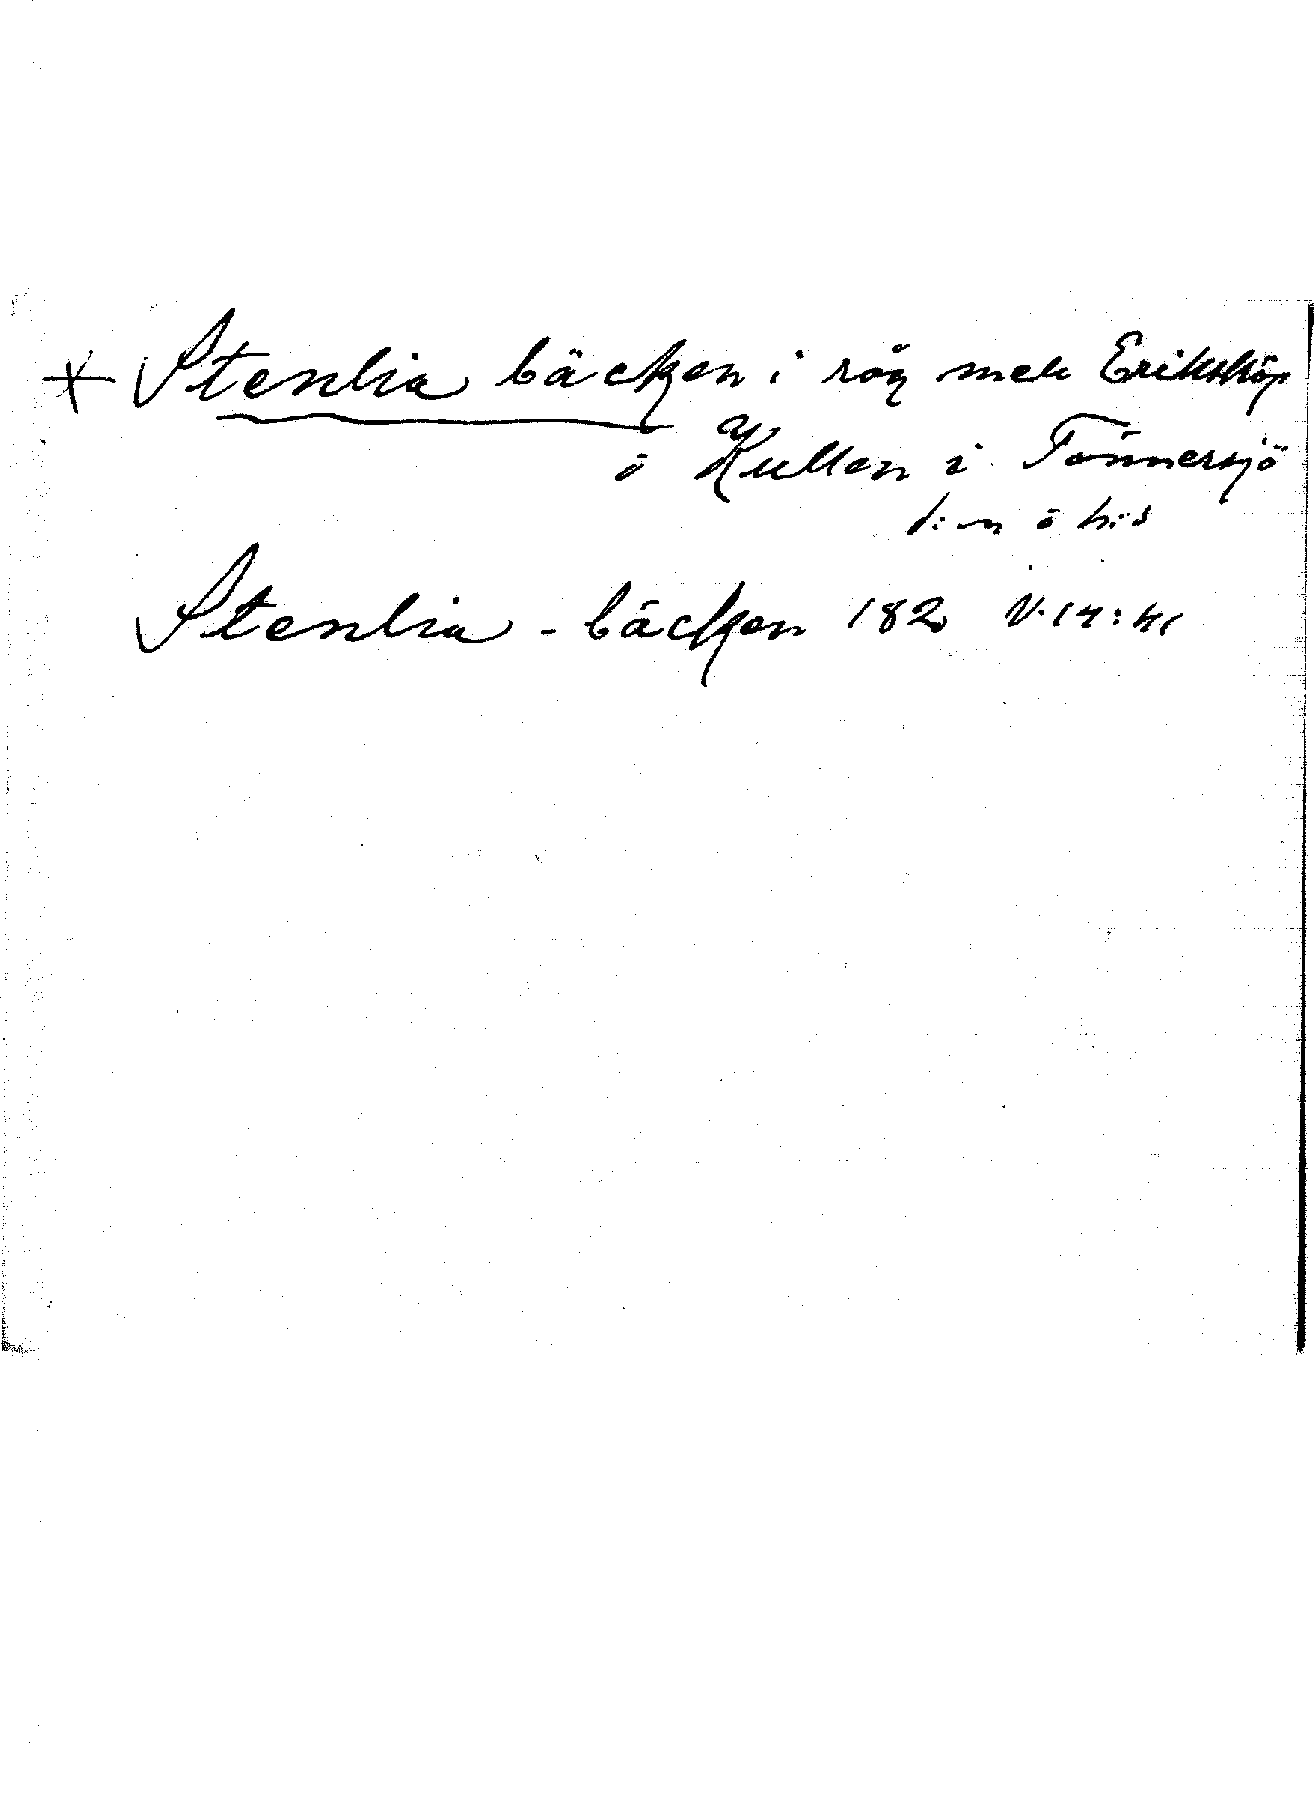 Stenlia bäcken i råg mell Eriksköp
o Kullen i Tönnersjö
Stenlia - bäcken 182 V.14:41